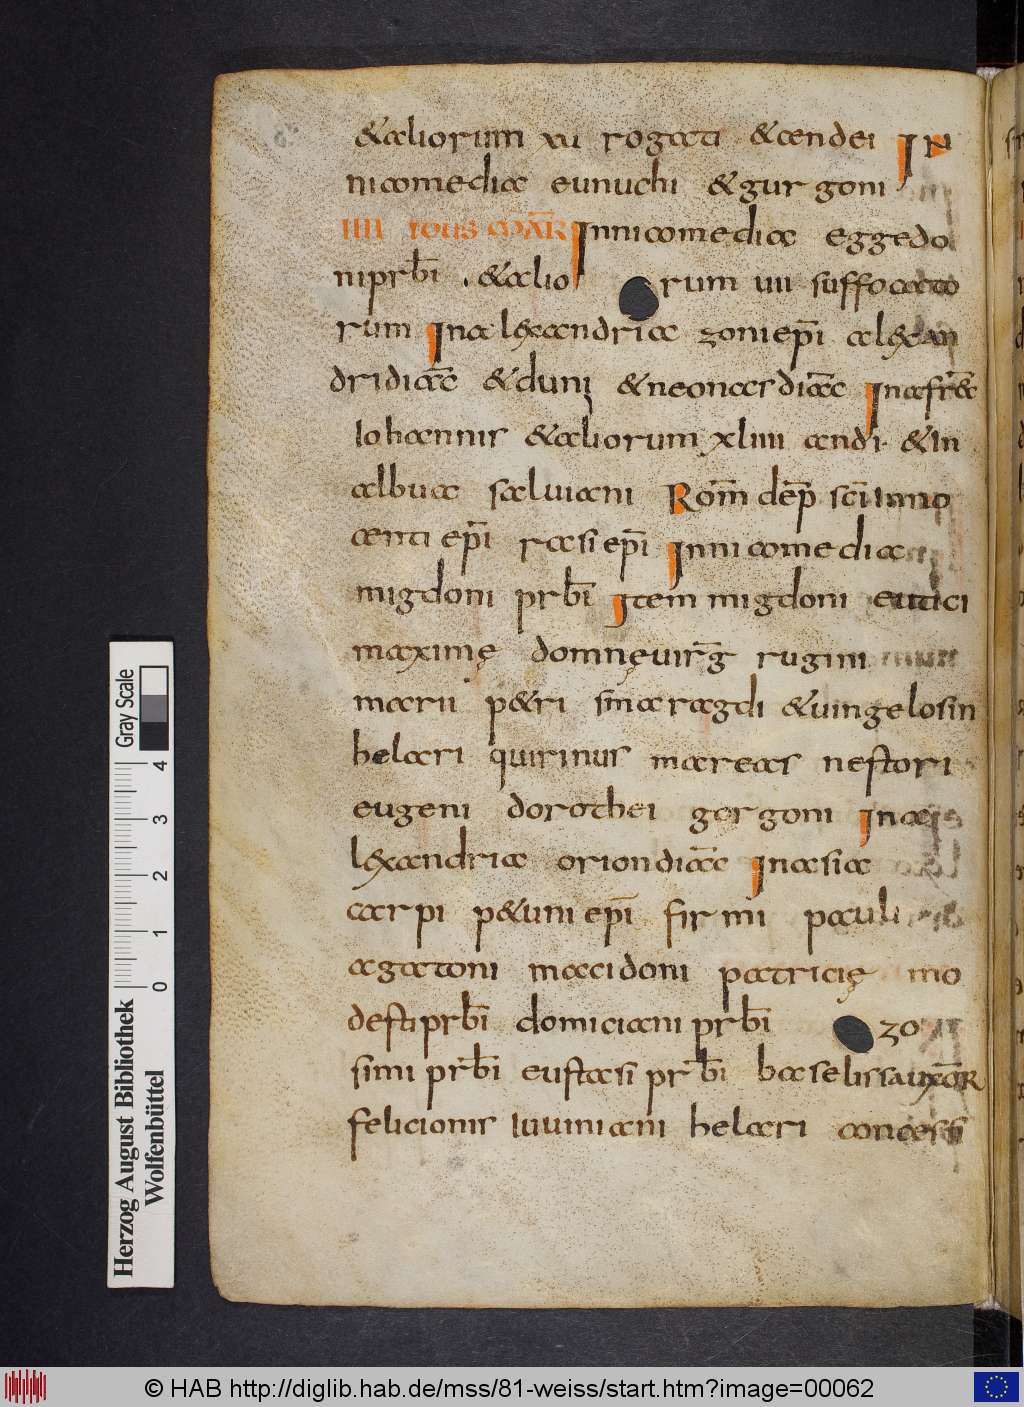 &aliorum xvi rogati &andei In
nicomedia eunuchi &gurgoni
IIII IDUS MAR̄ Innicomedia eggedo
niprb̄i . &alio rum uii suffocato
rum Inalexandria zoni ep̄i alexan
dridiac̄ &duni &neonas diac̄ Inafrec̄
Iohannis &aliorum xliiii andi. &in
albua saluiani Rom̄ dep̄ sc̄i inno
centi ep̄i rasi ep̄i Innicomedia
migdoni prb̄i Item migdoni eutici
maximę domnęvirḡ rugini
marii p&ri smaragdi &uingelosin
helari quirinus mareas nestori
eugeni dorothei gorgoni Ina
lexandria oriondiac̄ Inasia
carpi p&uni ep̄i firmi pauli
agatoni macidoni patricię mo
desti prb̄i domiciani prb̄i zo
simi prb̄i eustasi prb̄i baselissa uxōR
felicionis iuuiniani helari concessi
Gray Scale
0 1 2 3 4
Herzog August Bibliothek
Wolfenbüttel
© HAB http://diglib.hab.de/mss/81-weiss/start.htm?image=00062